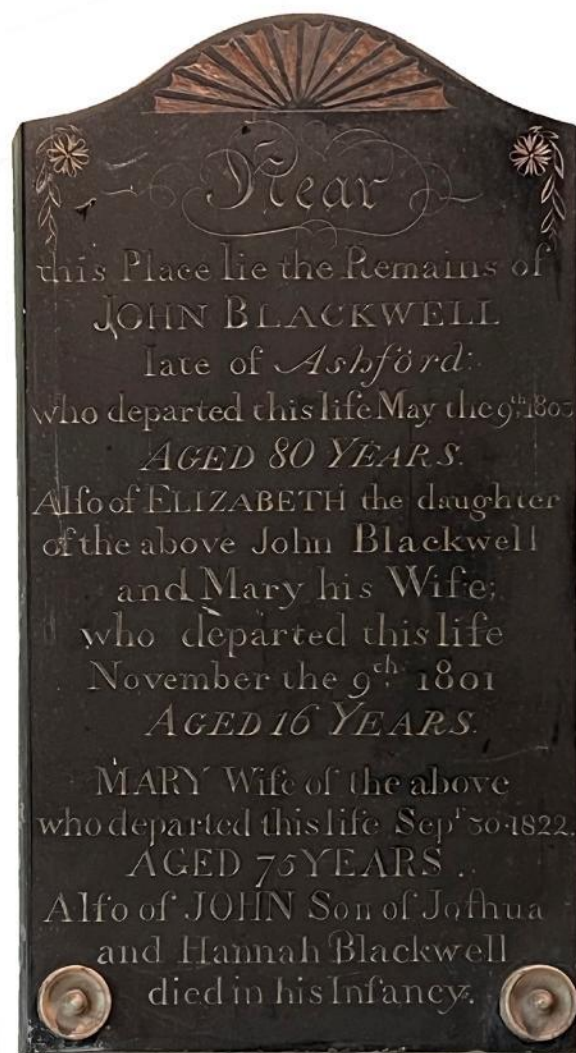 Near
this Place lie the Remains of
JOHN BLACKWELL
late of Ashford:
who departed this life May the 9th. 1803
AGED 80 YEARS.
Alſo of ELIZABETH the daughter
of the above John Blackwell
and Mary his Wife;
who departed this life
November the 9th. 1801
AGED 16 YEARS.
MARY Wife of the above
who departed this life Sepr 30 1822.
AGED 75 YEARS.
Alſo of JOHN Son of Joſhua
and Hannah Blackwell
died in his Infancy.